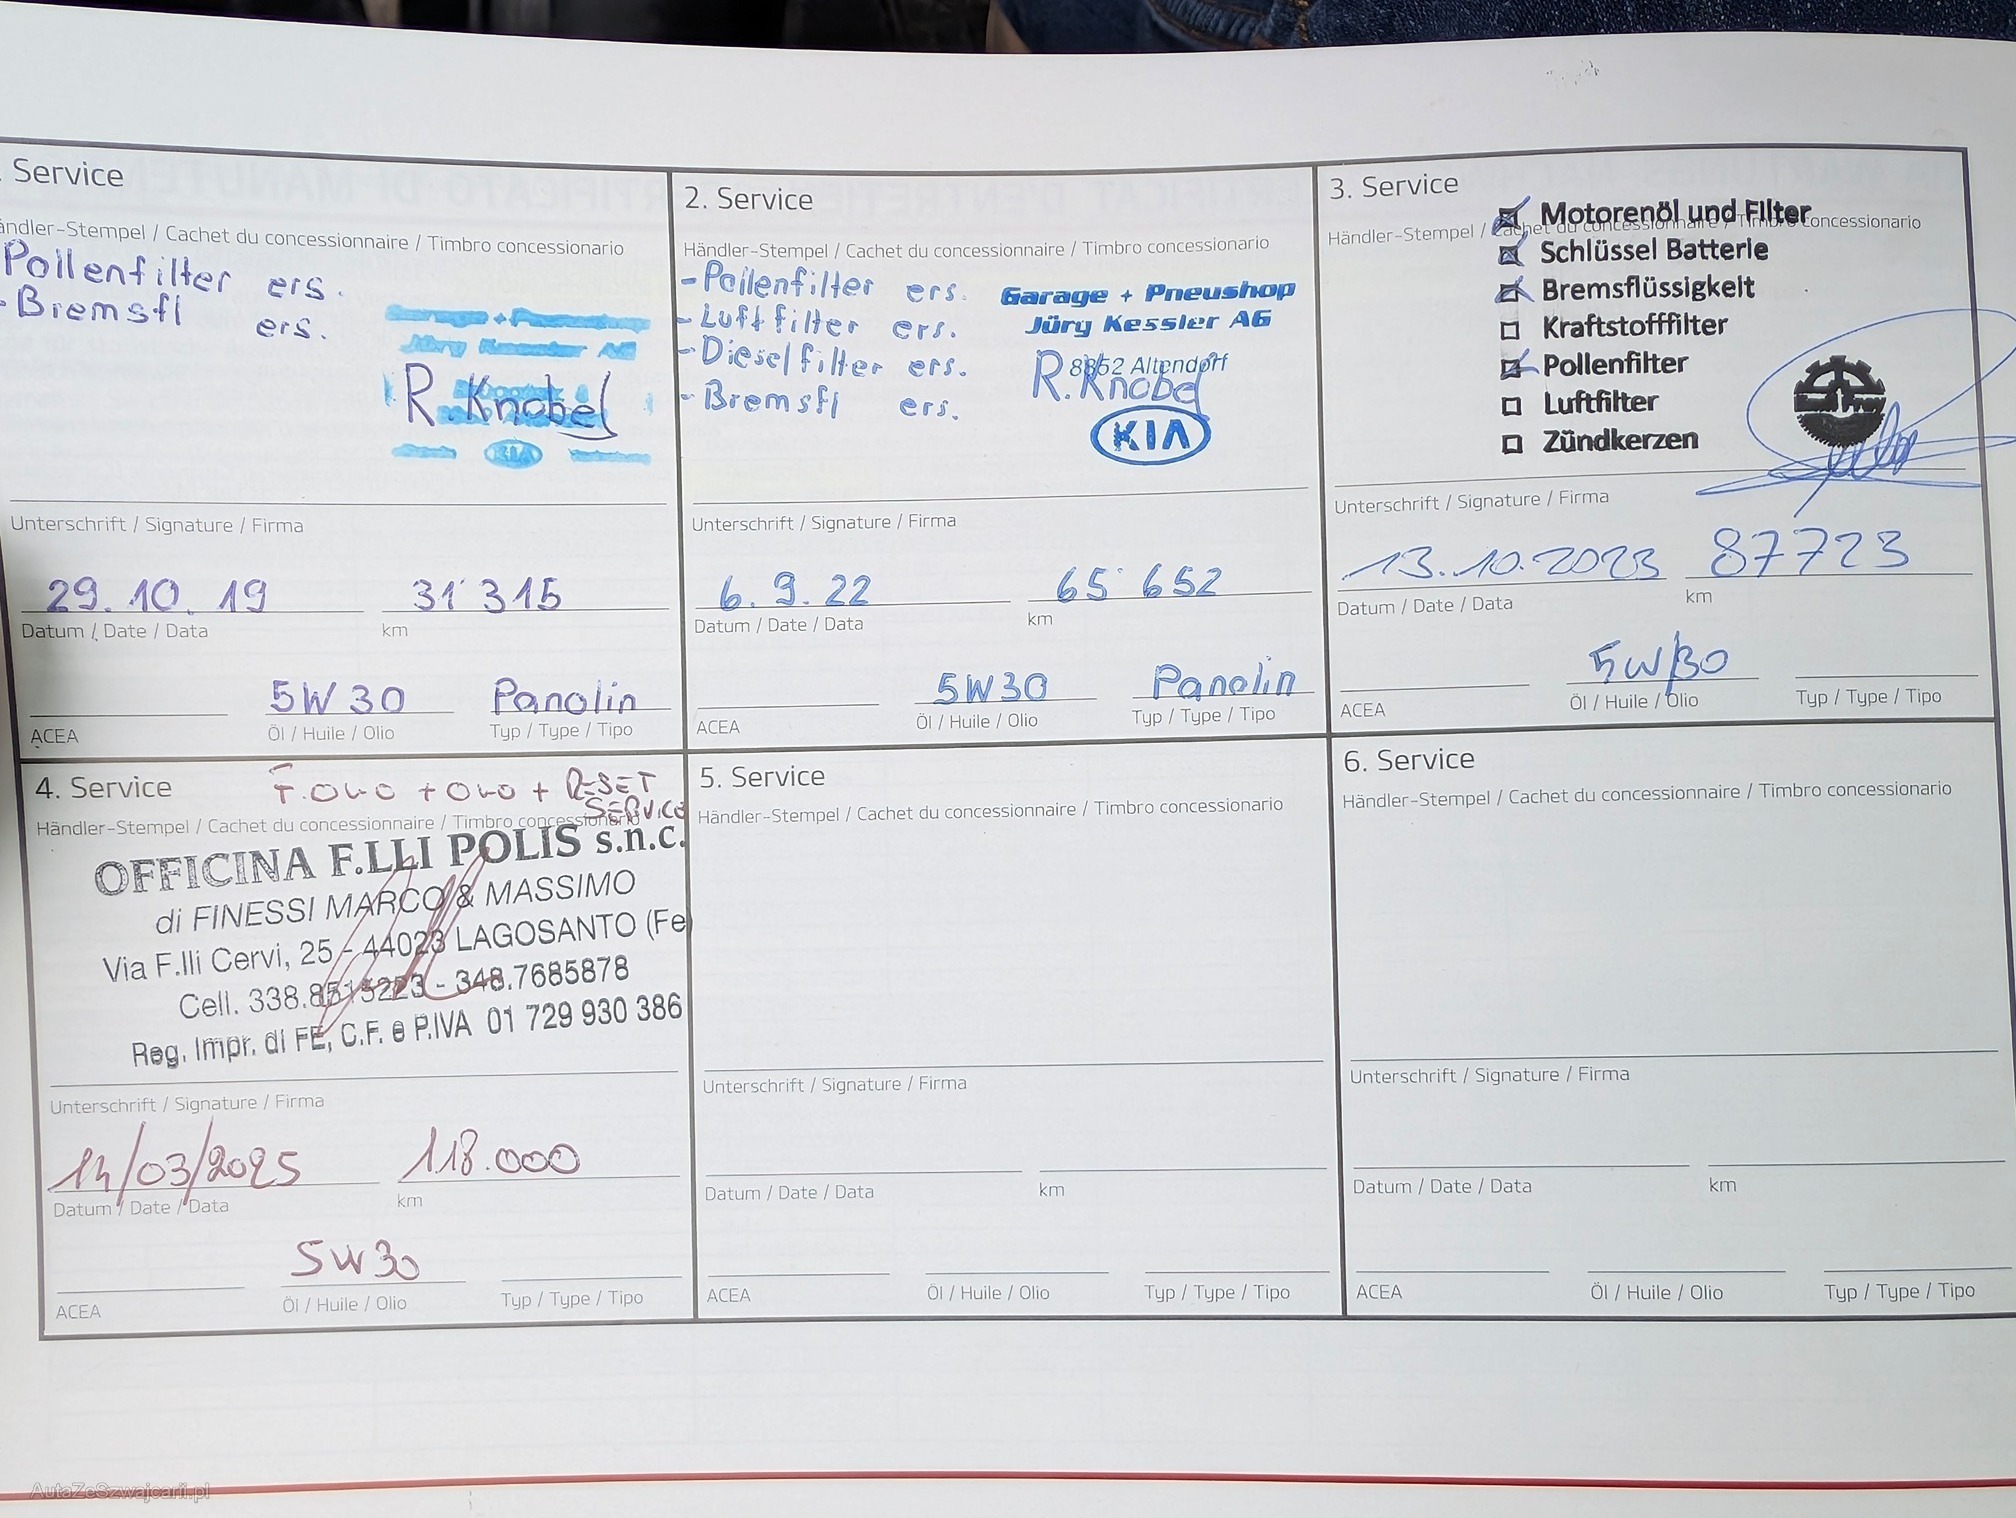 . Service
ändler-Stempel / Cachet du concessionnaire / Timbro concessionario
Pollenfilter ers.
- Bremsfl ers.
Garage + Pneushop
Jüry Kessler AG
R. Knobel
KIA
Unterschrift / Signature / Firma
29.10.19 31'315
Datum / Date / Data km
5W30 Panolin
ACEA Öl / Huile / Olio Typ / Type / Tipo
2. Service
Händler-Stempel / Cachet du concessionnaire / Timbro concessionario
- Pollenfilter ers.
- Luftfilter ers.
- Dieselfilter ers.
- Bremsfl ers.
Garage + Pneushop
Jüry Kessler AG
8852 Altendorf
R. Knobel
KIA
Unterschrift / Signature / Firma
6.9.22 65'652
Datum / Date / Data km
5W30 Panolin
ACEA Öl / Huile / Olio Typ / Type / Tipo
3. Service
Händler-Stempel / Cachet du concessionnaire / Timbro concessionario
Motorenöl und Filter
Schlüssel Batterie
Bremsflüssigkeit
Kraftstofffilter
Pollenfilter
Luftfilter
Zündkerzen
Unterschrift / Signature / Firma
13.10.2023 87723
Datum / Date / Data km
5W/30
ACEA Öl / Huile / Olio Typ / Type / Tipo
4. Service
F. OLIO + OLIO + RESET
SERVICE
Händler-Stempel / Cachet du concessionnaire / Timbro concessionario
OFFICINA F.LLI POLIS s.n.c.
di FINESSI MARCO & MASSIMO
Via F.lli Cervi, 25 - 44023 LAGOSANTO (Fe
Cell. 338.8515223 - 348.7685878
Reg. Impr. di FE, C.F. e P.IVA 01 729 930 386
Unterschrift / Signature / Firma
14/03/2025 118.000
Datum / Date / Data km
5W30
ACEA Öl / Huile / Olio Typ / Type / Tipo
5. Service
Händler-Stempel / Cachet du concessionnaire / Timbro concessionario
Unterschrift / Signature / Firma
Datum / Date / Data km
ACEA Öl / Huile / Olio Typ / Type / Tipo
6. Service
Händler-Stempel / Cachet du concessionnaire / Timbro concessionario
Unterschrift / Signature / Firma
Datum / Date / Data km
ACEA Öl / Huile / Olio Typ / Type / Tipo
AutaZeSzwajcarii.pl